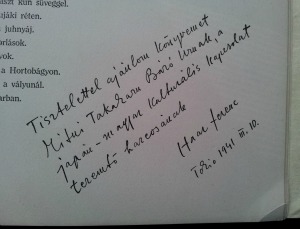 iszt kun süveggel.
ujáki réten.
juhnyáj.
árlások.
vok.
a Hortobágyon.
a vályunál.
arban.
Tisztelettel ajánlom könyvemet
Mitui Takaharu Báró Urnak, a
japán-magyar kulturális kapcsolat
teremtő harcosának
Haar Ferenc
Tokio 1941 III. 10.